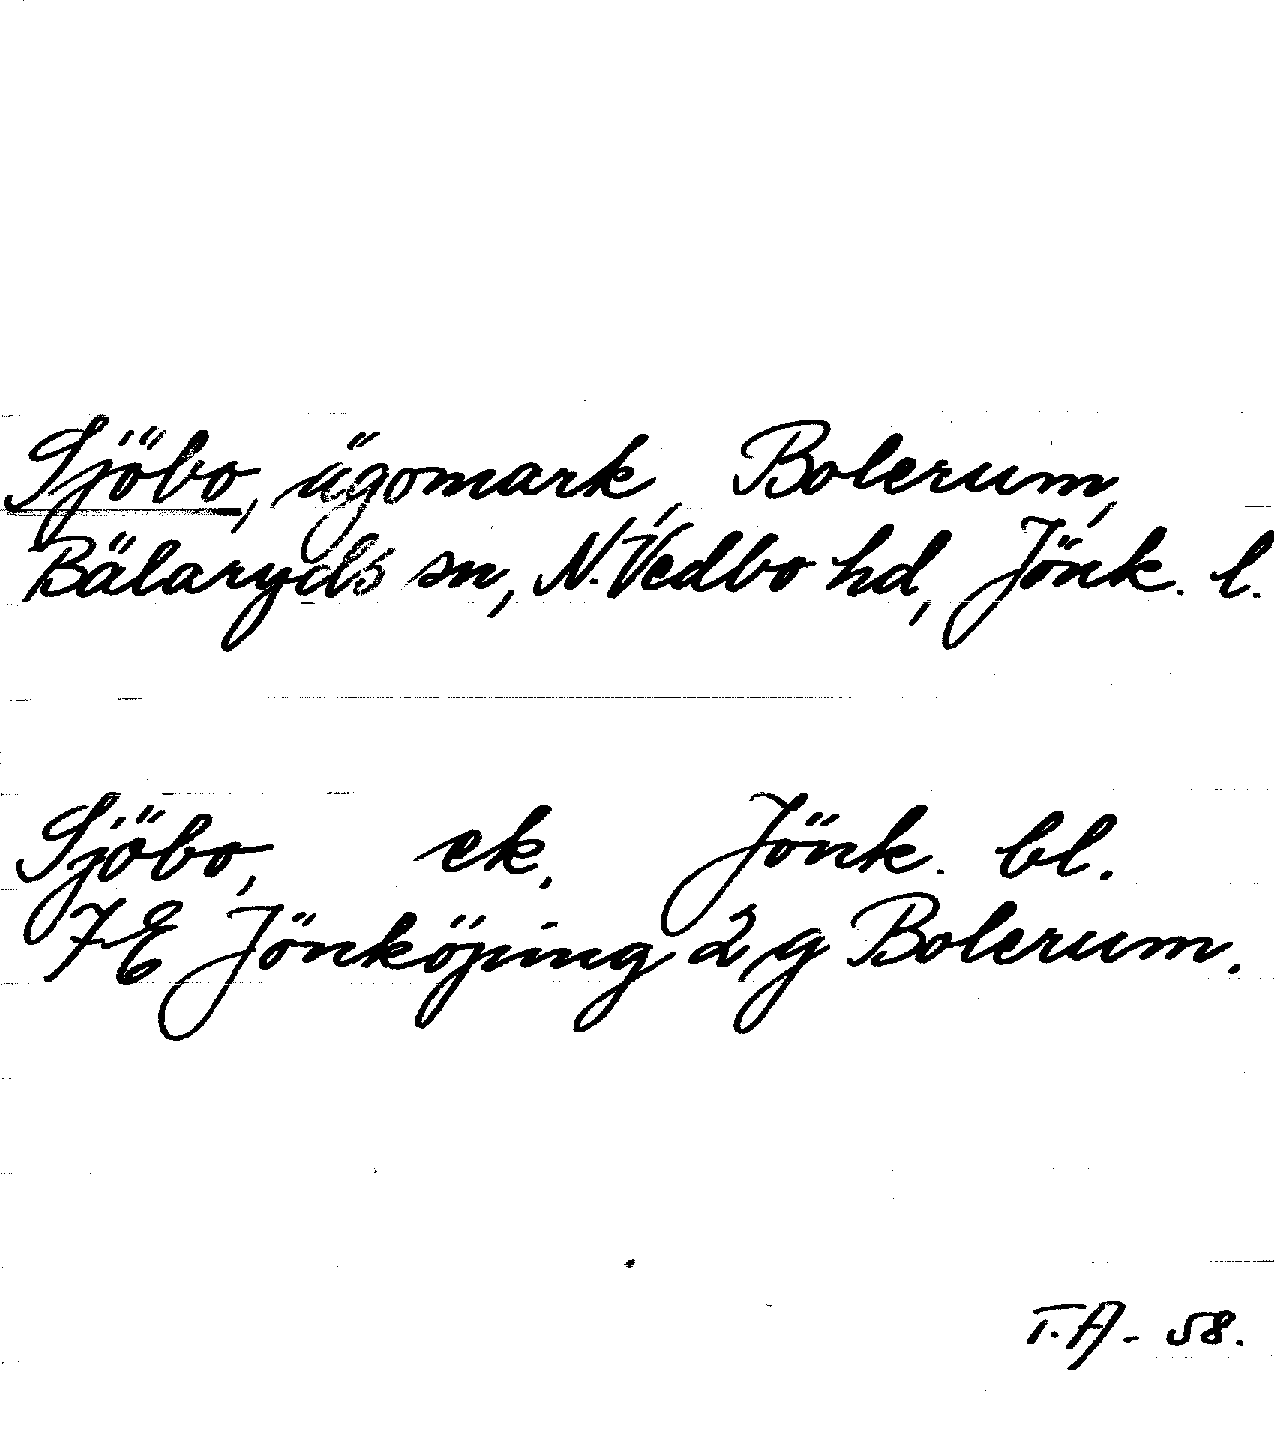 Sjöbo, ägomark, Bolerum,
Bälaryds sn, N. Vedbo hd, Jönk. l.
Sjöbo, ek. Jönk. bl.
7E Jönköping 2 g Bolerum.
T.A - 58.